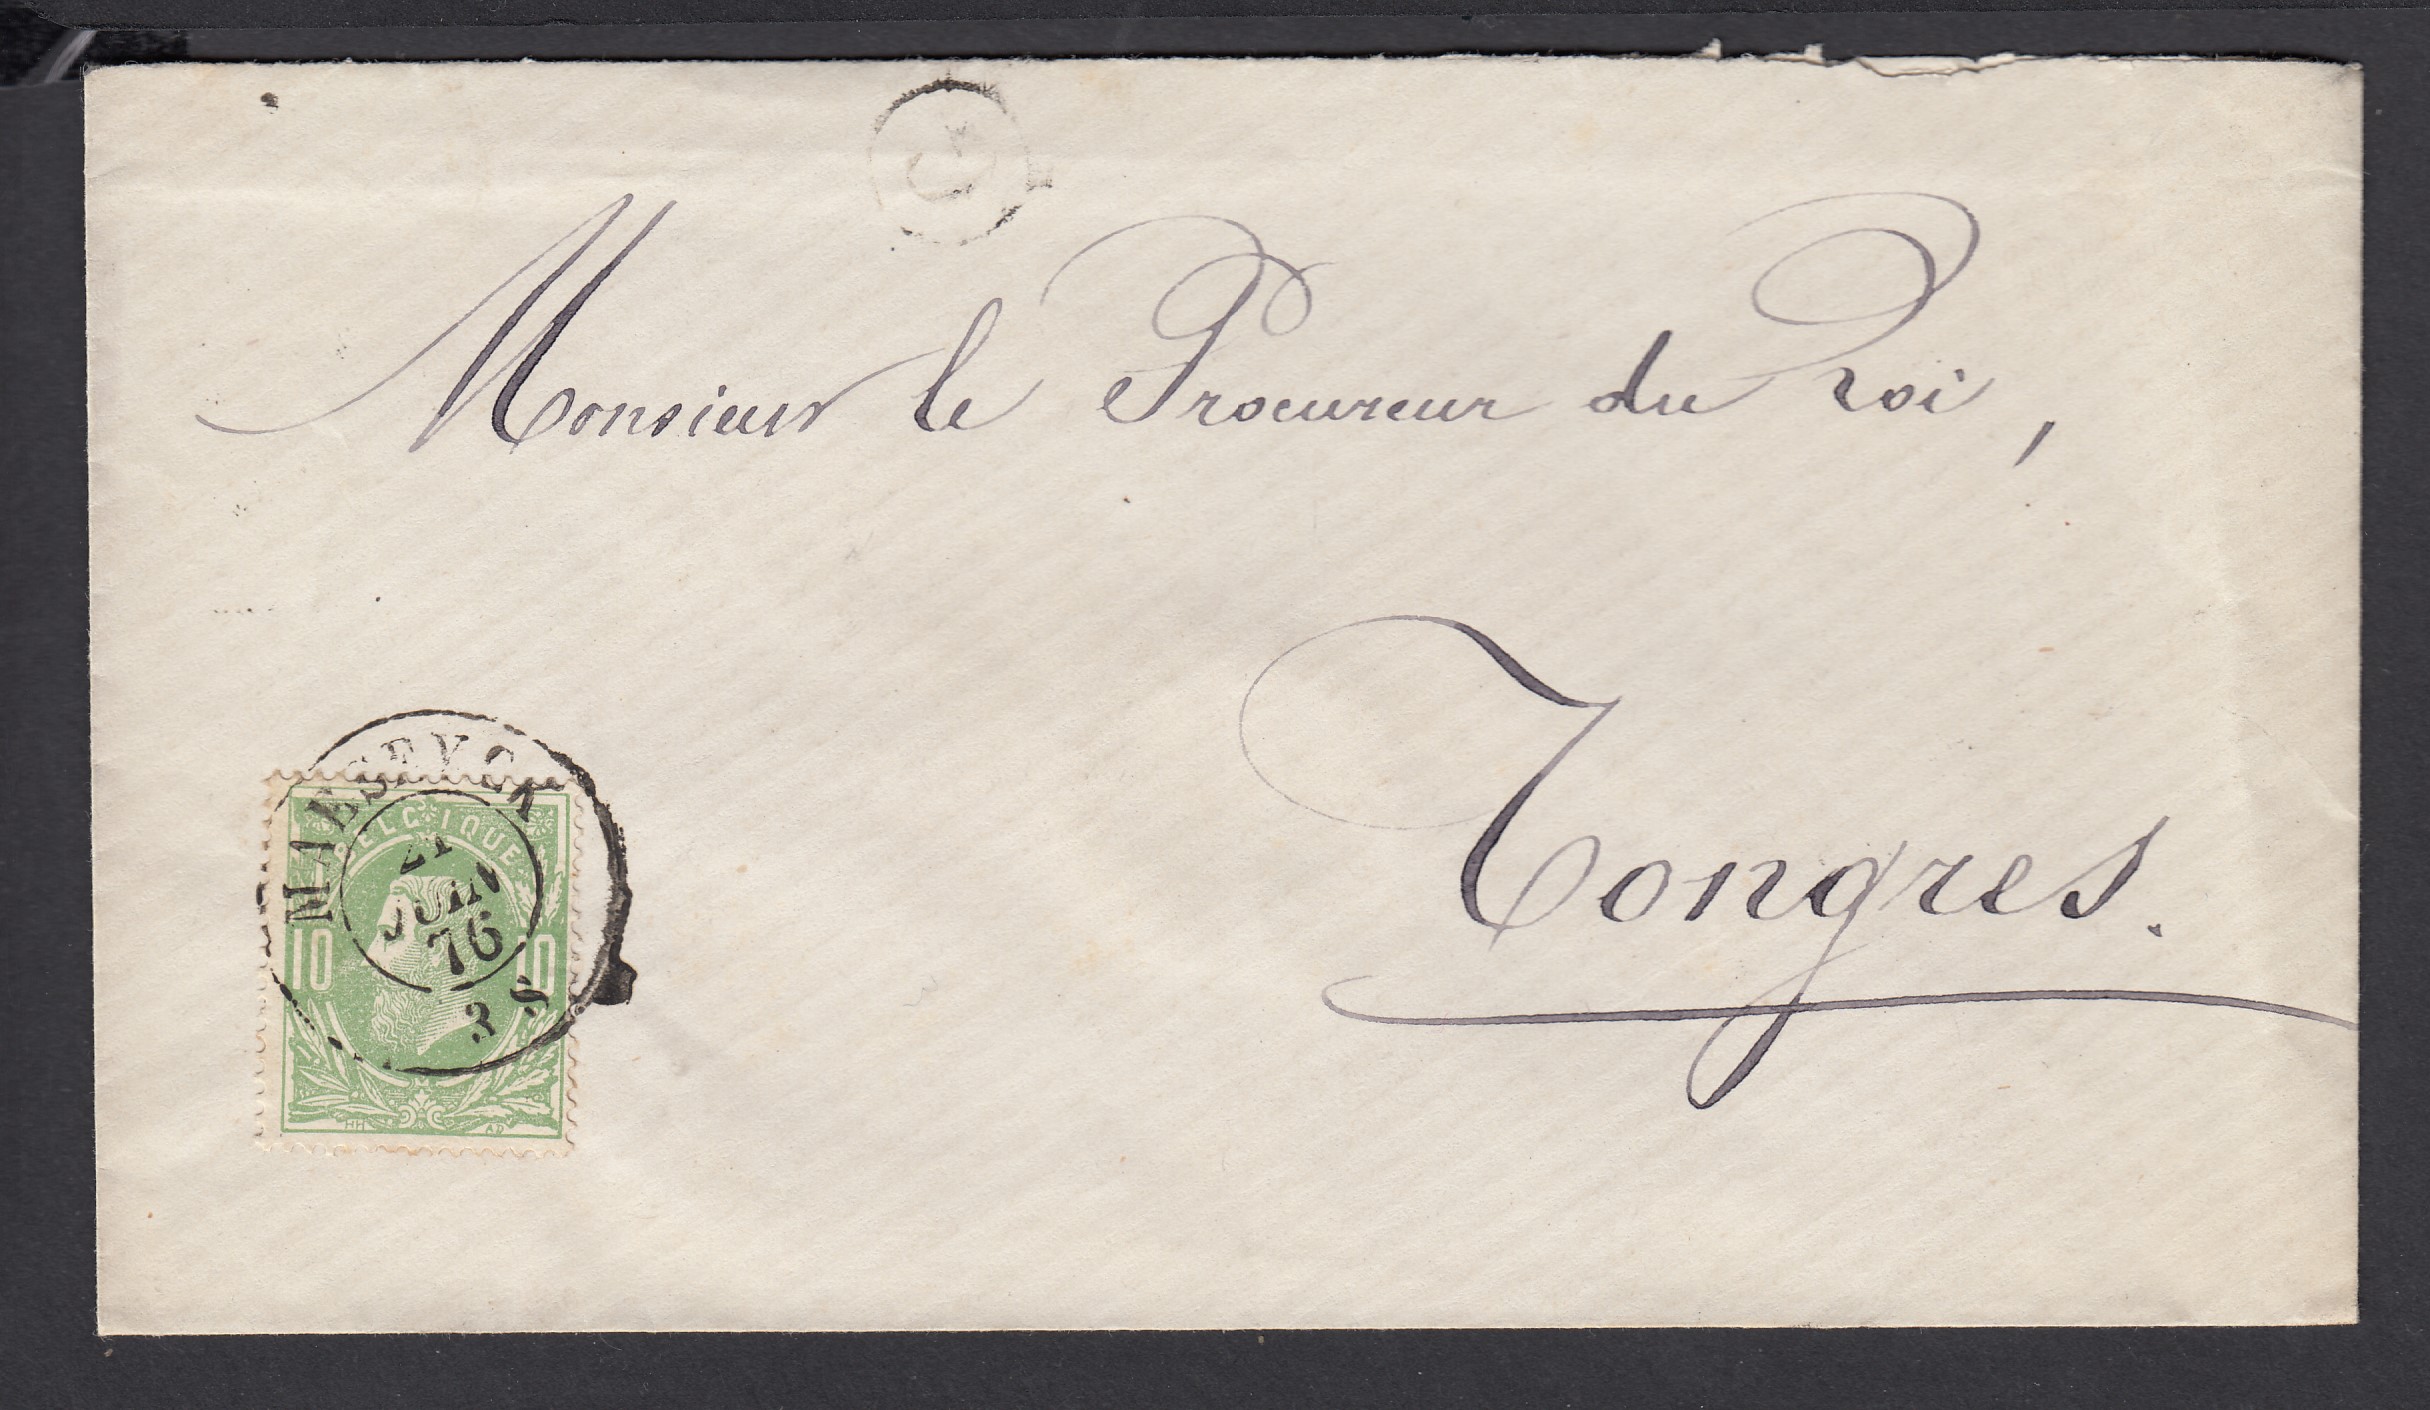 Monsieur le Procureur du Roi,
Tongres.
MAESEYCK
21
JUIN
76
3 S
BELGIQUE
10 10
HH AD